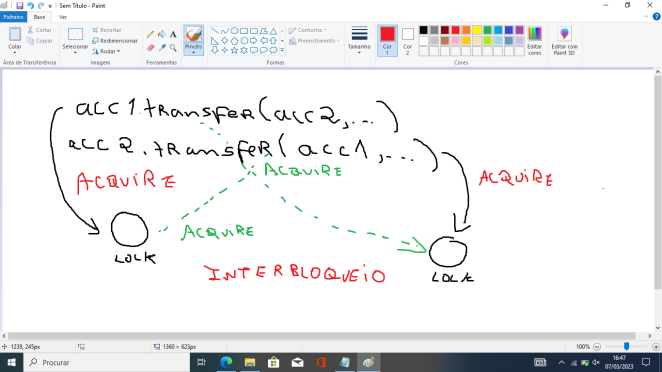 Sem Título - Paint
Ficheiro
Base
Ver
Colar
Cortar
Copiar
Área de Transferência
Selecionar
Recortar
Redimensionar
Rodar
Imagem
Ferramentas
Pincéis
Formas
Contorno
Preenchimento
Tamanho
Cor 1
Cor 2
Cores
Editar cores
Editar com Paint 3D
acc1.transfer(acc2,...)
acc2.transfer(acc1,...)
ACQUIRE
ACQUIRE
ACQUIRE
ACQUIRE
LOCK
LOCK
INTERBLOQUEiO
1239, 245px
1360 × 623px
100%
Procurar
16:47
07/03/2023